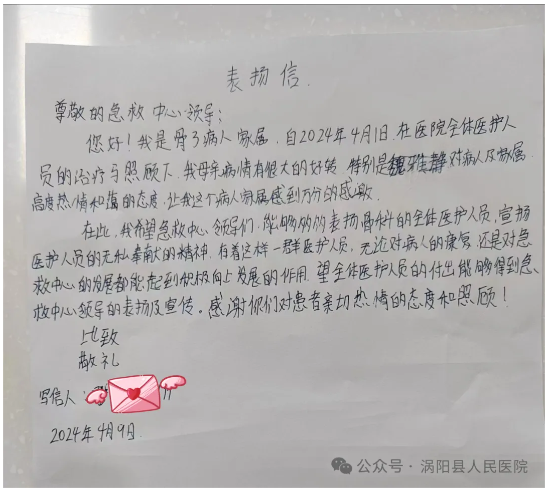 表扬信.
尊敬的急救中心领导:
您好!我是骨3病人家属,自2024年4月1日,在医院全体医护人
员的治疗与照顾下,我母亲病情有很大的好转.特别是魏雅静对病人及家属
高度热情和蔼的态度,让我这个病人家属感到万分的感激.
在此,我希望急救中心领导们,能够的表扬骨科的全体医护人员,宣扬
医护人员的无私奉献的精神,有着这样一群医护人员,无论对病人的康复,还是对急
救中心的发展都能起到积极向上发展的作用.望全体医护人员的付出能够得到急
救中心领导的表扬及宣传。感谢你们对患者亲切热情的态度和照顾!
此致
敬礼
写信人:
2024年4月9日.
公众号·涡阳县人民医院